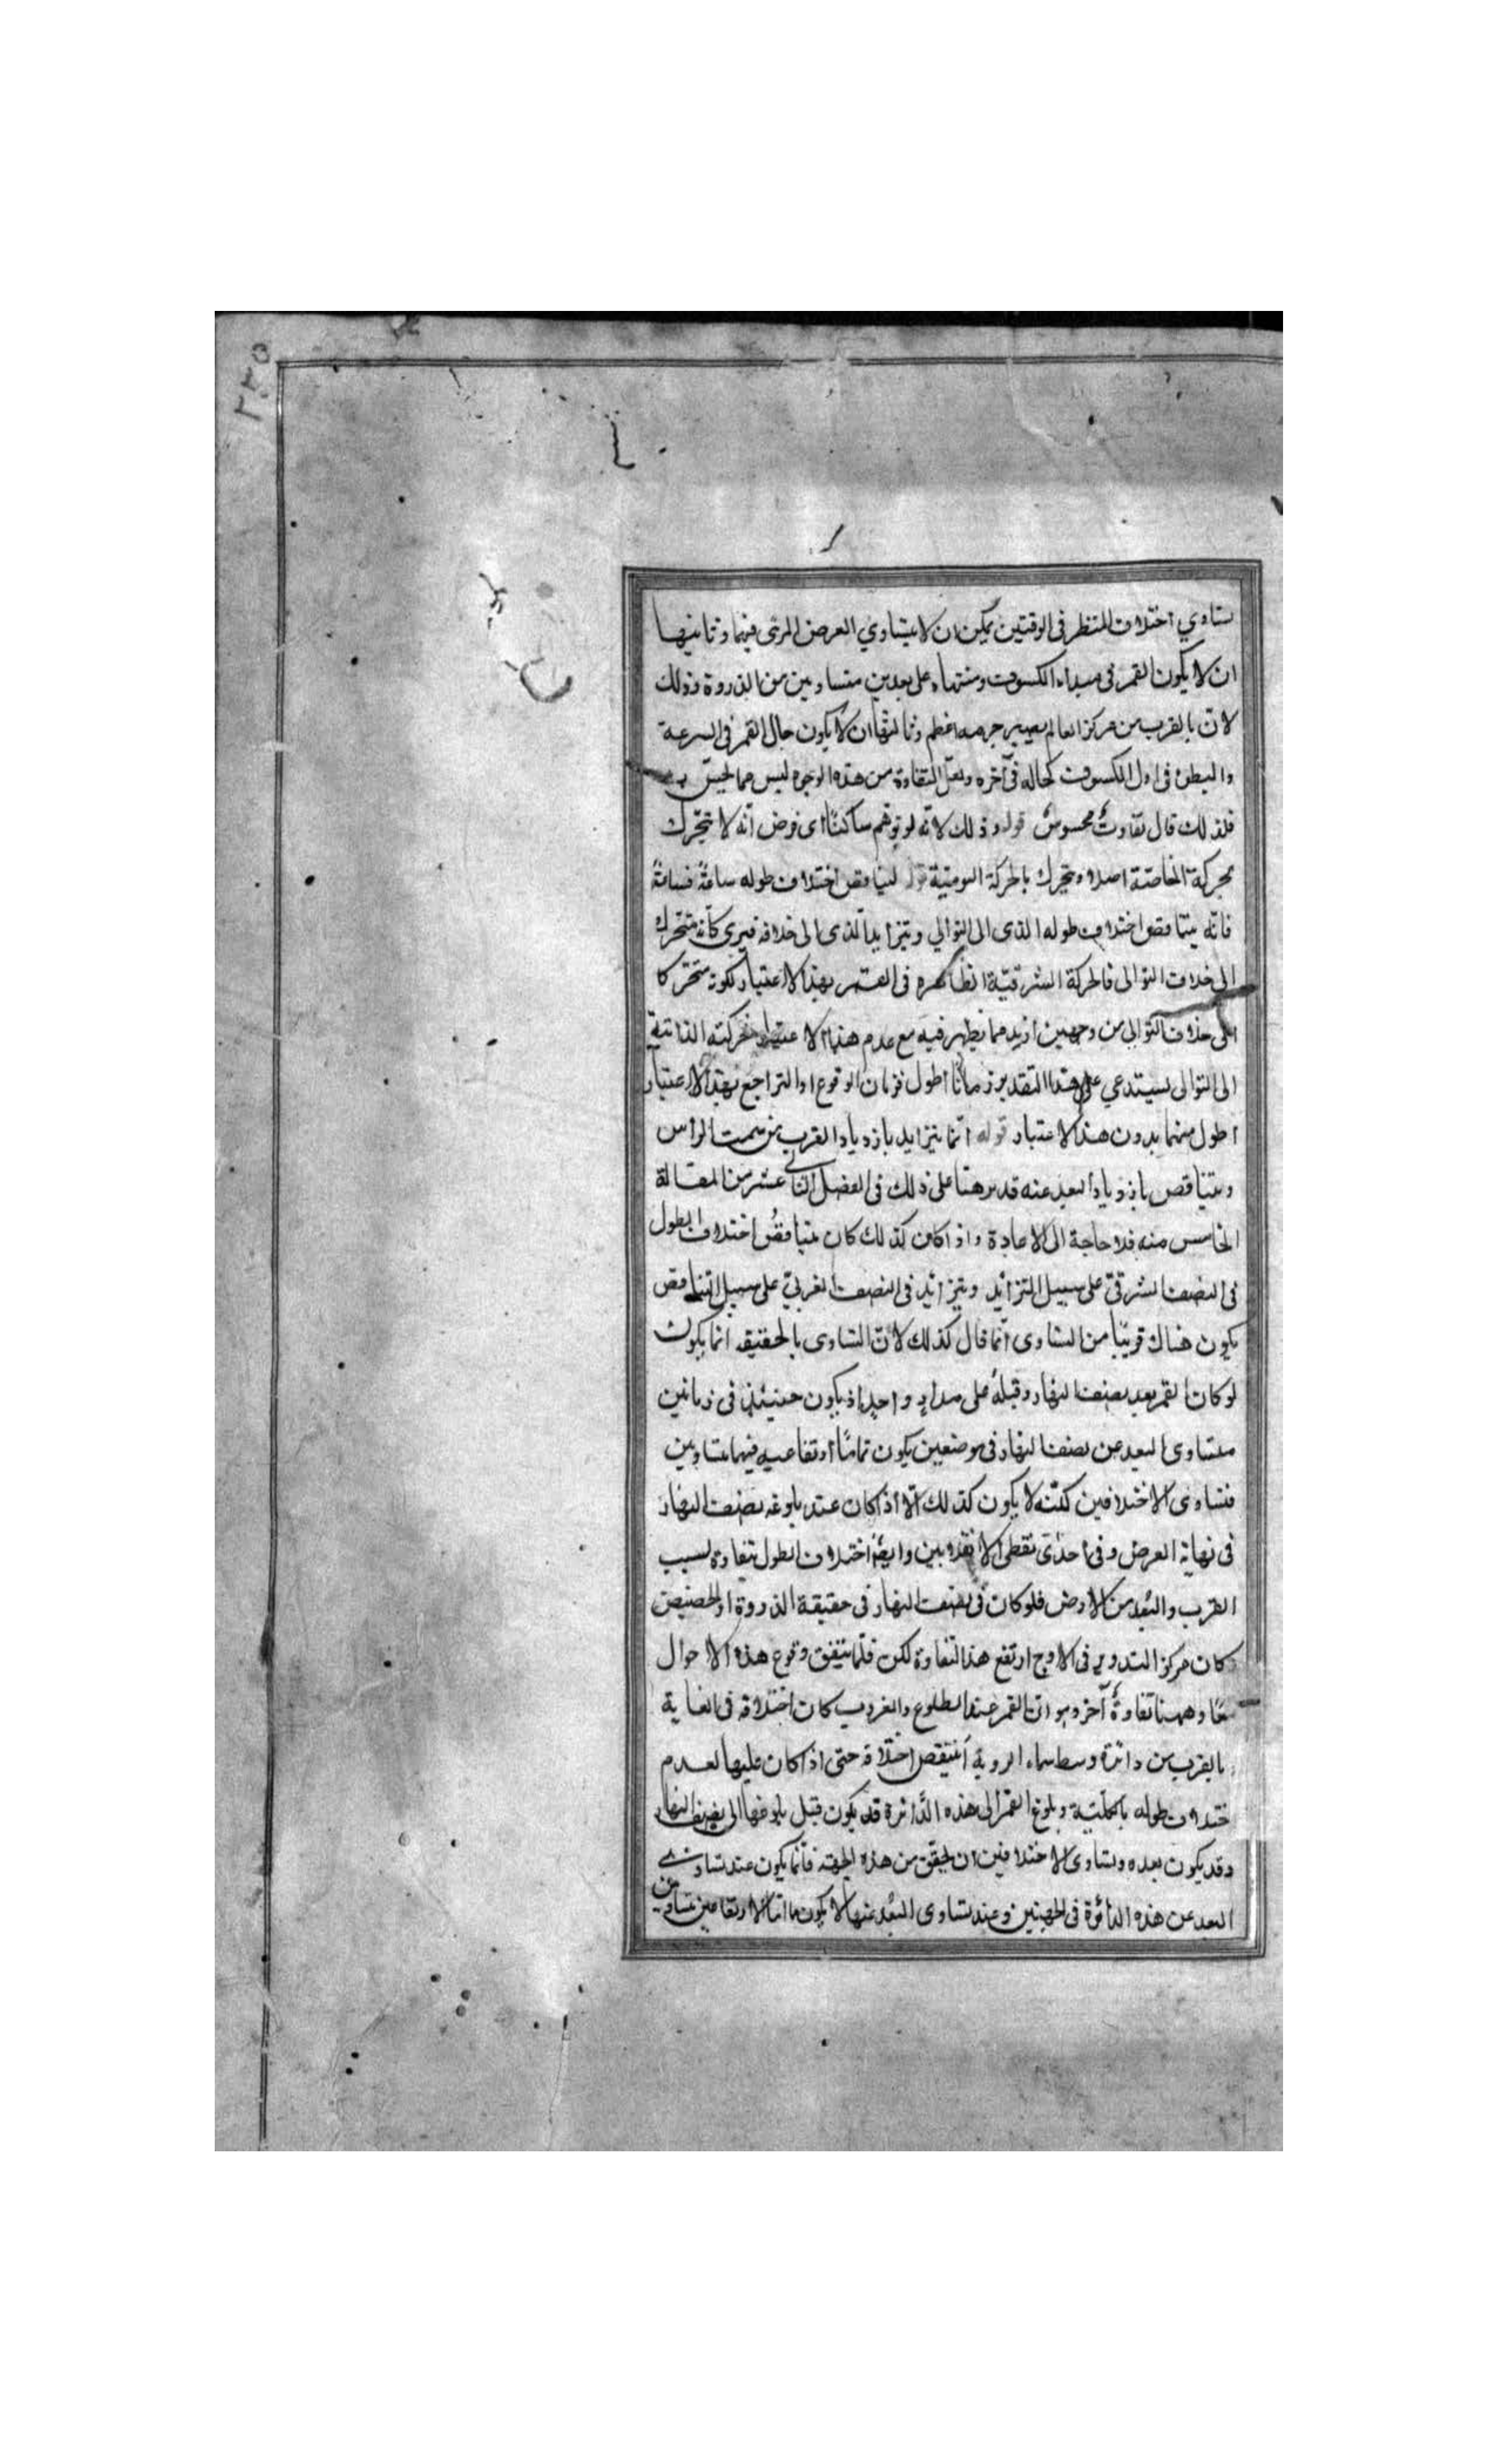 ٢٣٥
تساوي اختلاف المنظر فى الوقتين يمكن ان لا يتساوي العرض المرئى فيهما وثانيها
ان لا يكون القمر فى مبداء الكسوف ومنتهاه على بعدين متساويين من الذروة وذلك
لانّ بالقرب من مركز العالم يصير جرمه اعظم وثالثها ان لا يكون حال القمر فى السرعة
والبطؤ فى اول الكسوف كحاله فى آخره ولعلّ التفاوة من هذه الوجوه ليس مما يحسّ به
فلذلك قال تفاوتٌ محسوسٌ قوله وذلك لانّه لو توهم ساكنًا اى فرض انّه لا يتحرّك
بحركة الخاصّة اصلا ويتحرك بالحركة اليوميّة قوله ليناقص اختلاف طوله ساعةً فساعةً
فانّه يتناقص اختلاف طوله الذى الى التوالي ويتزايد الّذى الى خلافه فيرى كأنّه متحرّك
الى خلاف التوالى فالحركة الشرقيّة الظاهره فى القمر بهذا الاعتبار لكونه متحرّكا
الى خلاف التوالي من وجهين ازيد مما يظهر فيه مع عدم هذا الاعتبار فحركته الذاتيّة
الى التوالى يستدعي على هذا التقدير زمانًا اطول فزمان الوقوع او التراجع بهذا الاعتبار
اطول منهما بدون هذا الاعتبار قوله انّما يتزايد بازدياد القرب من سمت الراس
ويتناقص بازدياد البعد عنه قد برهنّا على ذلك فى الفصل الثاني عشر من المقالة
الخامس منه فلا حاجة الى الاعادة واذا كان كذلك كان تناقصُ اختلاف الطول
فى النصف الشرقىّ على سبيل التزائد وتزائد فى النصف الغربىّ على سبيل التناقص
يكون هناك قريبًا من التساوى انّما قال كذلك لانّ التساوى بالحقيقه انما يكون
لو كان القمر بعد نصف النهار وقبله على مدارٍ واحدٍ اذ يكون حينئذٍ فى زمانين
متساوى البعد عن نصف النهار فى موضعين يكون تمامًا ارتفاعيه فيهما متساويين
فتساوى الاختلافين لكنّه لا يكون كذلك الّا اذا كان عند بلوغه نصف النهار
فى نهاية العرض وفى احدَى نقطى الانقلابين وايضًا اختلاف الطول يتفاوة بسبب
القرب والبُعد من الارض فلو كان فى نصف النهار فى حقيقة الذروة او الحضيض
وكان مركز التدوير فى الاوج ارتفع هذا التفاوة لكن قلّما يتفق وقوع هذه الاحوال
معًا وههنا تفاوةٌ آخر وهو ان القمر عند الطلوع والغروب كان اختلافه فى الغاية
بالقرب من دائرة وسط سماء الروية انتقص اختلافه حتى اذا كان عليها لعدم
ختلاف طوله بالكلّيّة وبلوغ القمر الى هذه الدّائرة قد يكون قبل بلوغها الى نصف النهار
وقد يكون بعده وتساوى الاختلافين ان لحقق من هذه الجهته فانّما يكون عند تساوى
البعد عن هذه الدائرة فى الجهتين وعند تساوى البُعد عنها لا يكون تماما الارتفاعين متساويين